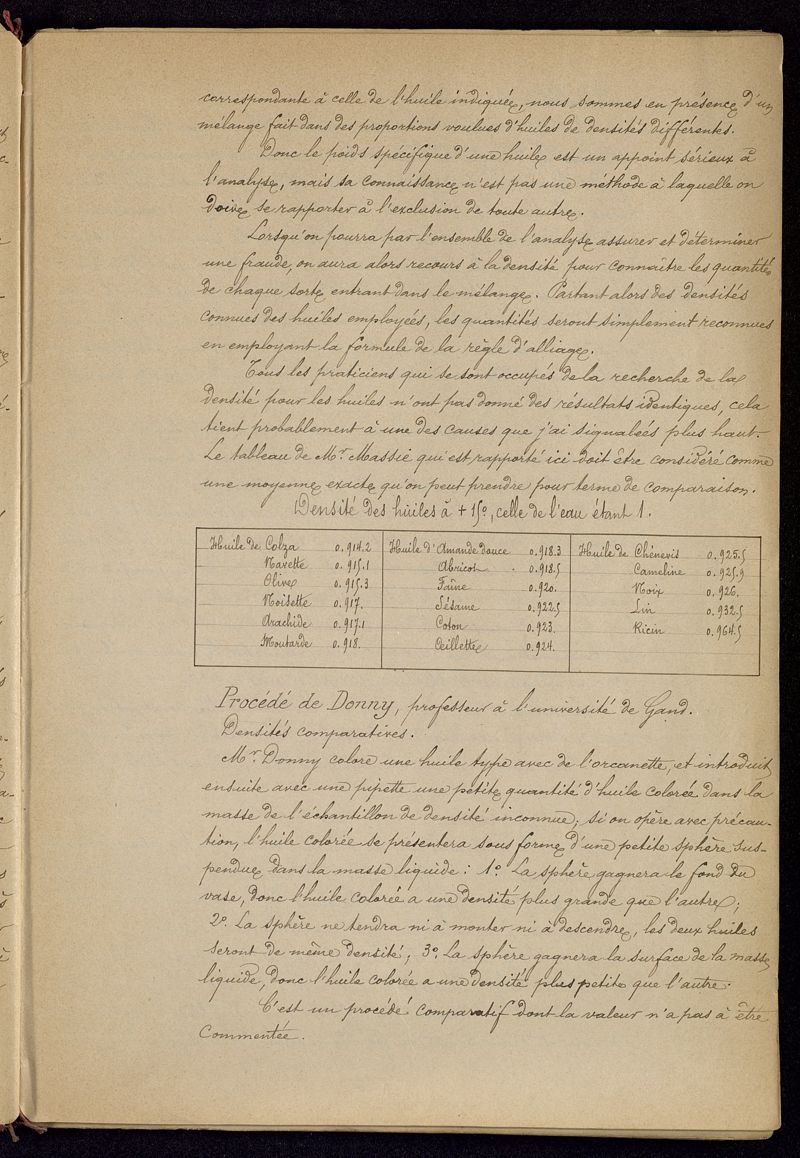 correspondante à celle de l'huile indiquée, nous sommes en présence d'un
mélange fait dans des proportions voulues d'huiles de densités différentes.
Donc le poids spécifique d'une huile est un appoint sérieux à
l'analyse, mais sa connaissance n'est pas une méthode à laquelle on
doive se rapporter à l'exclusion de toute autre.
Lorsqu'on pourra par l'ensemble de l'analyse assurer et déterminer
une fraude, on aura alors recours à la densité pour connaître les quantités
de chaque sorte entrant dans le mélange. Partant alors des densités
connues des huiles employées, les quantités seront simplement reconnues
en employant la formule de la règle d'alliage.
Tous les praticiens qui se sont occupés de la recherche de la
densité pour les huiles n'ont pas donné des résultats identiques, cela
tient probablement à une des causes que j'ai signalées plus haut.
Le tableau de Mr. Massie qui est rapporté ici doit être considéré comme
une moyenne exacte qu'on peut prendre pour terme de comparaison.
Densité des huiles à + 15°, celle de l'eau étant 1.
Huile de Colza 0.914.2 Huile d'Amande douce 0.918.3 Huile de Chènevis 0.925.5
Navette 0.915.1 Abricot 0.918.5 Cameline 0.925.9
Olive 0.915.3 Faîne 0.920. Noix 0.926.
Noisette 0.917. Sésame 0.922.5 Lin 0.932.5
Arachide 0.917.1 Coton 0.923. Ricin 0.964.5
Moutarde 0.918. Œillette 0.924.
Procédé de Donny, professeur à l'université de Gand.
Densités comparatives.
Mr. Donny colore une huile type avec de l'orcanette, et introduit
ensuite avec une pipette une petite quantité d'huile colorée dans la
masse de l'échantillon de densité inconnue; si on opère avec précau-
tion, l'huile colorée se présentera sous forme d'une petite sphère sus-
pendue dans la masse liquide: 1° La sphère gagnera le fond du
vase, donc l'huile colorée a une densité plus grande que l'autre;
2° La sphère ne tendra ni à monter ni à descendre, les deux huiles
seront de même densité; 3° La sphère gagnera la surface de la masse
liquide, donc l'huile colorée a une densité plus petite que l'autre.
C'est un procédé comparatif dont la valeur n'a pas à être
commentée.